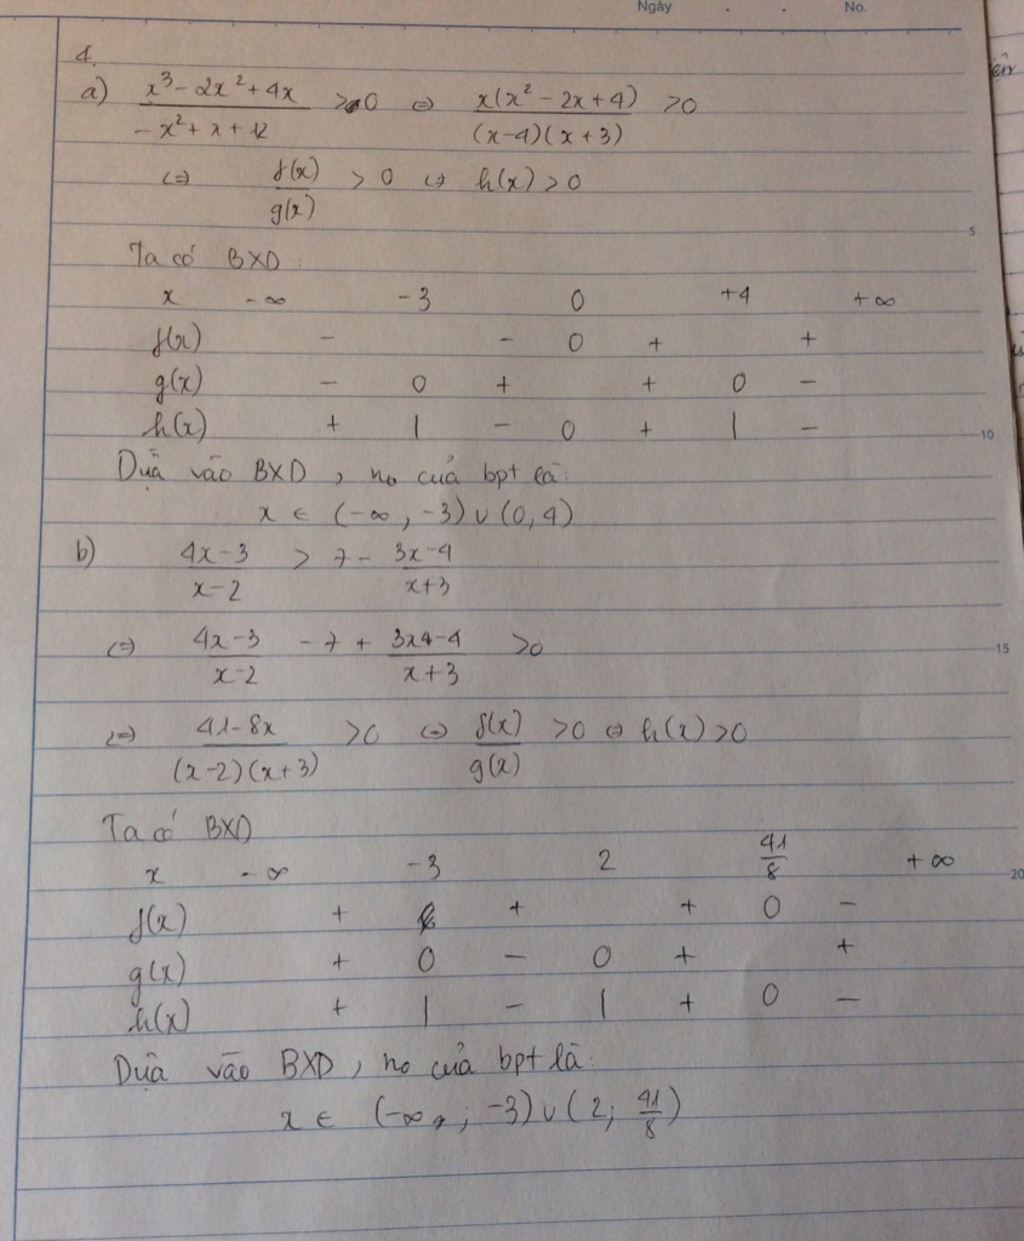 Ngày . . No.
4.
a) \frac{x^3 - 2x^2 + 4x}{-x^2 + x + 12} > 0 ⇔ \frac{x(x^2 - 2x + 4)}{(x-4)(x+3)} > 0
⇔ \frac{f(x)}{g(x)} > 0 ⇔ h(x) > 0
5
Ta có BXD:
x -∞ -3 0 +4 +∞
f(x) - - 0 + +
g(x) - 0 + + 0 -
h(x) + | - 0 + | -
10
Dựa vào BXD, no của bpt là:
x ∈ (-∞, -3) ∪ (0, 4)
b) \frac{4x-3}{x-2} > 7 - \frac{3x-4}{x+3}
⇔ \frac{4x-3}{x-2} - 7 + \frac{3x-4}{x+3} > 0
15
⇔ \frac{41-8x}{(x-2)(x+3)} > 0 ⇔ \frac{f(x)}{g(x)} > 0 ⇔ h(x) > 0
Ta có BXD
x -∞ -3 2 \frac{41}{8} +∞
20
f(x) + + + 0 -
g(x) + 0 - 0 + +
h(x) + | - | + 0 -
Dựa vào BXD, no của bpt là:
x ∈ (-∞; -3) ∪ (2; \frac{41}{8})